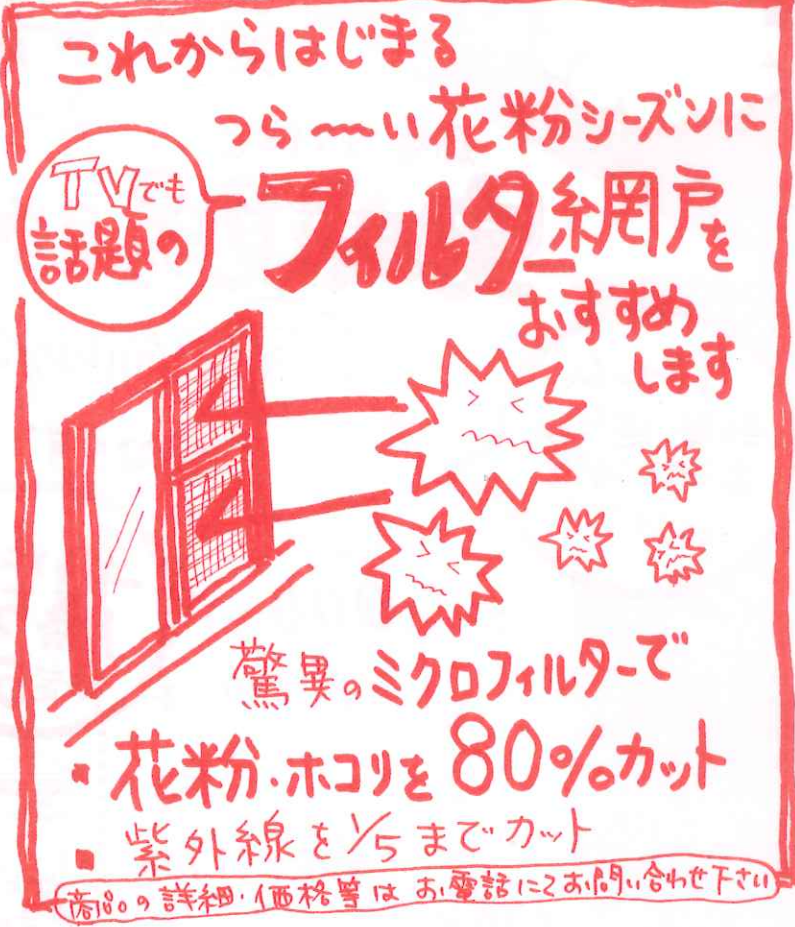 これからはじまる
つら〜い花粉シーズンに
TVでも
話題の
フィルター網戸を
おすすめ
します
驚異のミクロフィルターで
・花粉・ホコリを80%カット
▪紫外線を1/5までカット
商品の詳細・価格等はお電話にてお問い合わせ下さい